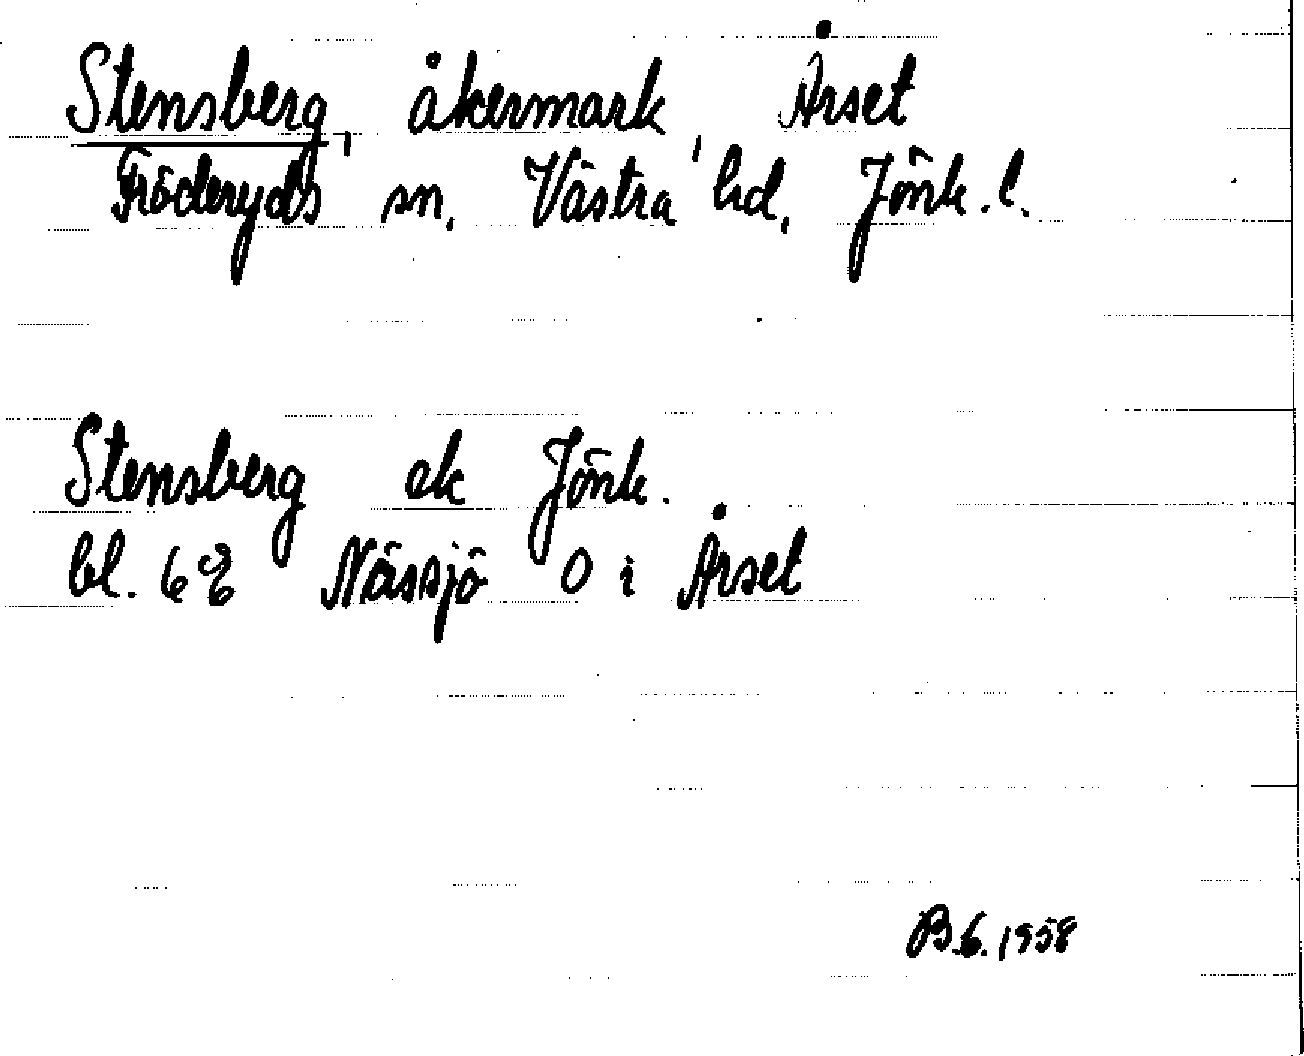 Stensberg, åkermark, Årset
Fröderyds sn. Västra hd. Jönk. l.
Stensberg ek Jönk.
bl. 68 Nässjö O i Årset
1958